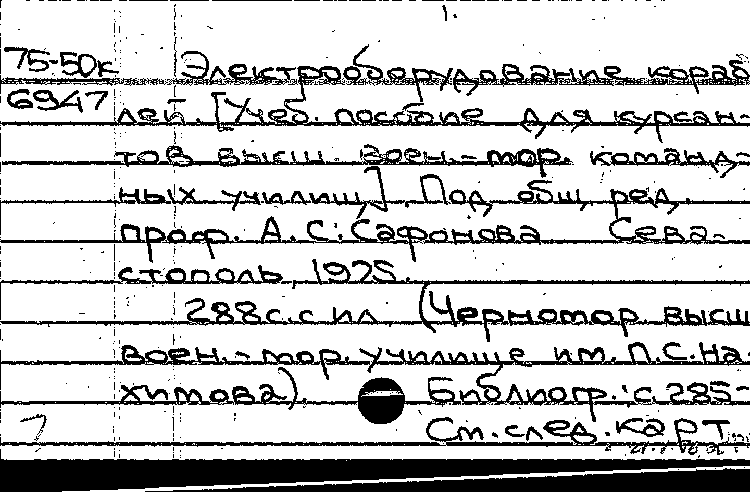 1.
75-50к Электрооборудование кораб
6947 лей. [Учеб. пособие для курсан-
тов высш. воен.-мор. команд-
ных училищ]. Под общ. ред.
проф. А.С. Сафонова Сева-
стополь, 1975.
288с. с ил. (Черномор. высш
воен.-мор. училище им. П.С. На-
химова). Библиогр.: с. 285-
См. след. карт.